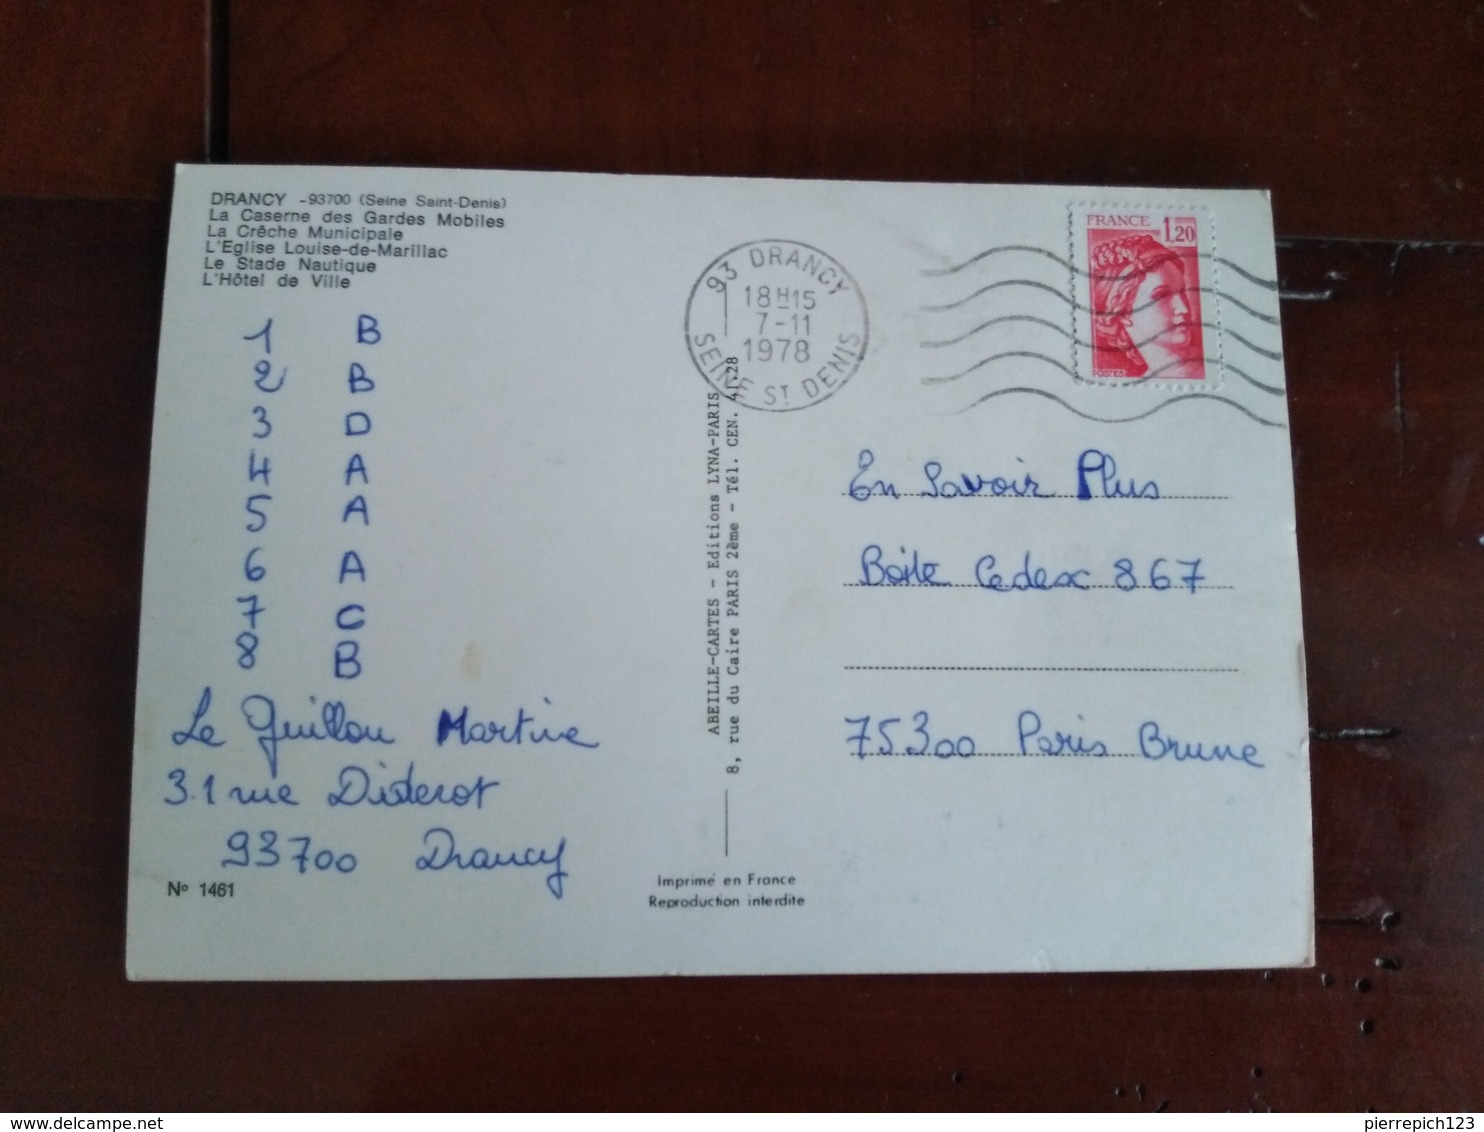 DRANCY - 93700 (Seine Saint-Denis)
La Caserne des Gardes Mobiles
La Crêche Municipale
L'Eglise Louise-de-Marillac
Le Stade Nautique
L'Hôtel de Ville
1 B
2 B
3 D
4 A
5 A
6 A
7 C
8 B
Le Guillou Martine
31 rue Diderot
93700 Drancy
N° 1461
ABEILLE-CARTES - Editions LYNA-PARIS
8, rue du Caire PARIS 2ème - Tél. CEN. 41.28
Imprimé en France
Reproduction interdite
93 DRANCY
18H15
7-11
1978
SEINE ST DENIS
FRANCE 1,20
POSTES
En Savoir Plus
Boite Cedex 867
75300 Paris Brune
delcampe.net
pierrepich123